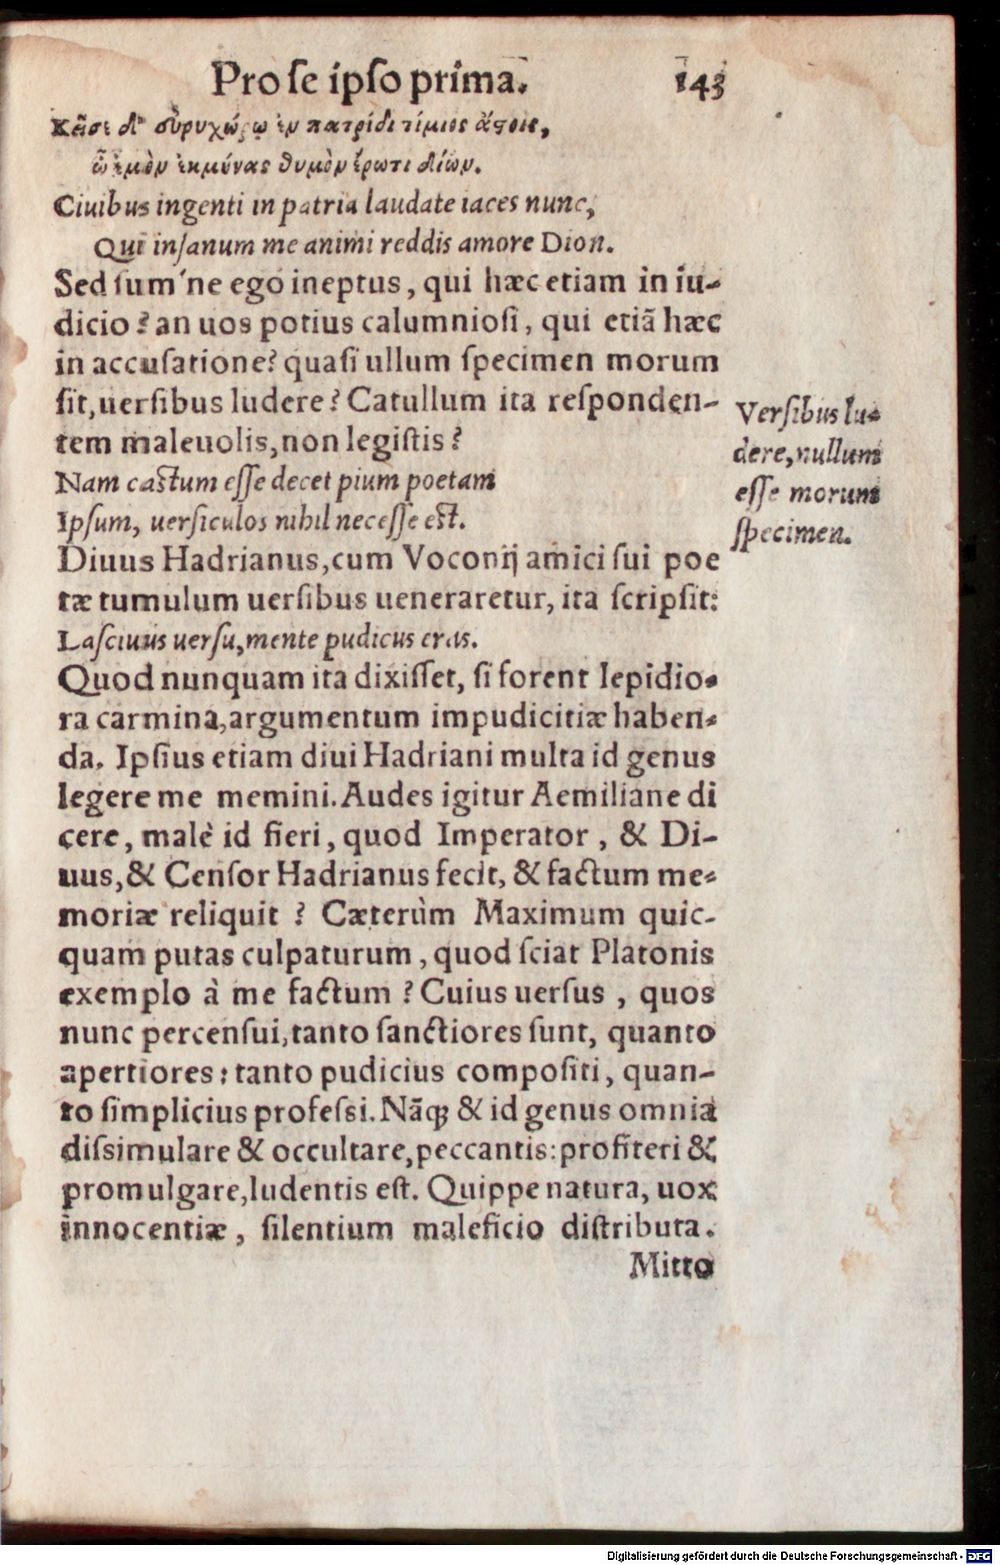 Pro ſe ipſo prima. 143
Κεῖσαι δ' εὐρυχόρῳ ἐν πατρίδι τίμιος ἀστοῖς,
ὦ ἐμὸν ἐκμήνας θυμὸν ἔρωτι Δίων.
Ciuibus ingenti in patria laudate iaces nunc,
Qui inſanum me animi reddis amore Dion.
Sed ſum'ne ego ineptus, qui hæc etiam in iu-
dicio? an uos potius calumnioſi, qui etiã hæc
in accuſatione? quaſi ullum ſpecimen morum
ſit, uerſibus ludere? Catullum ita reſponden-
tem maleuolis, non legiſtis?
Nam caſtum eſſe decet pium poetam
Ipſum, uerſiculos nihil neceſſe eſt.
Diuus Hadrianus, cum Voconij amici ſui poe
tæ tumulum uerſibus ueneraretur, ita ſcripſit:
Laſciuus uerſu, mente pudicus eras.
Quod nunquam ita dixiſſet, ſi forent lepidio-
ra carmina, argumentum impudicitiæ haben-
da. Ipſius etiam diui Hadriani multa id genus
legere me memini. Audes igitur Aemiliane di
cere, malè id fieri, quod Imperator, & Di-
uus, & Cenſor Hadrianus fecit, & factum me-
moriæ reliquit? Cæterùm Maximum quic-
quam putas culpaturum, quod ſciat Platonis
exemplo à me factum? Cuius uerſus, quos
nunc percenſui, tanto ſanctiores ſunt, quanto
apertiores: tanto pudicius compoſiti, quan-
to ſimplicius profeſsi. Nãq; & id genus omnia
diſsimulare & occultare, peccantis: profiteri &
promulgare, ludentis eſt. Quippe natura, uox
innocentiæ, ſilentium maleficio diſtributa.
Mitto
Verſibus lu-
dere, nullum
eſſe morum
ſpecimen.
Digitalisierung gefördert durch die Deutsche Forschungsgemeinschaft - DFG